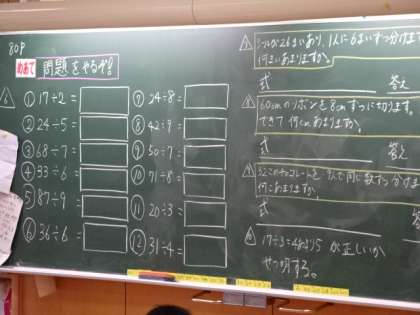 80P
めあて 問題をやるぞ!
6
① 17÷2=
② 24÷5=
③ 68÷7=
④ 33÷6=
⑤ 87÷9=
⑥ 36÷6=
⑦ 24÷8=
⑧ 42÷9=
⑨ 50÷7=
⑩ 71÷8=
⑪ 20÷3=
⑫ 31÷4=
7
が26まいあり、1人に6まいずつ分けます
何まいあまりますか。
式 答え
60cmのリボンを8cmずつに切ります。
できて何cmあまりますか。
式 答え
9
チョコレートを 9人で同じ数ずつ分けま
何こあまりますか。
式 答え
17÷3=4あまり5 が正しいか
せつ明する。